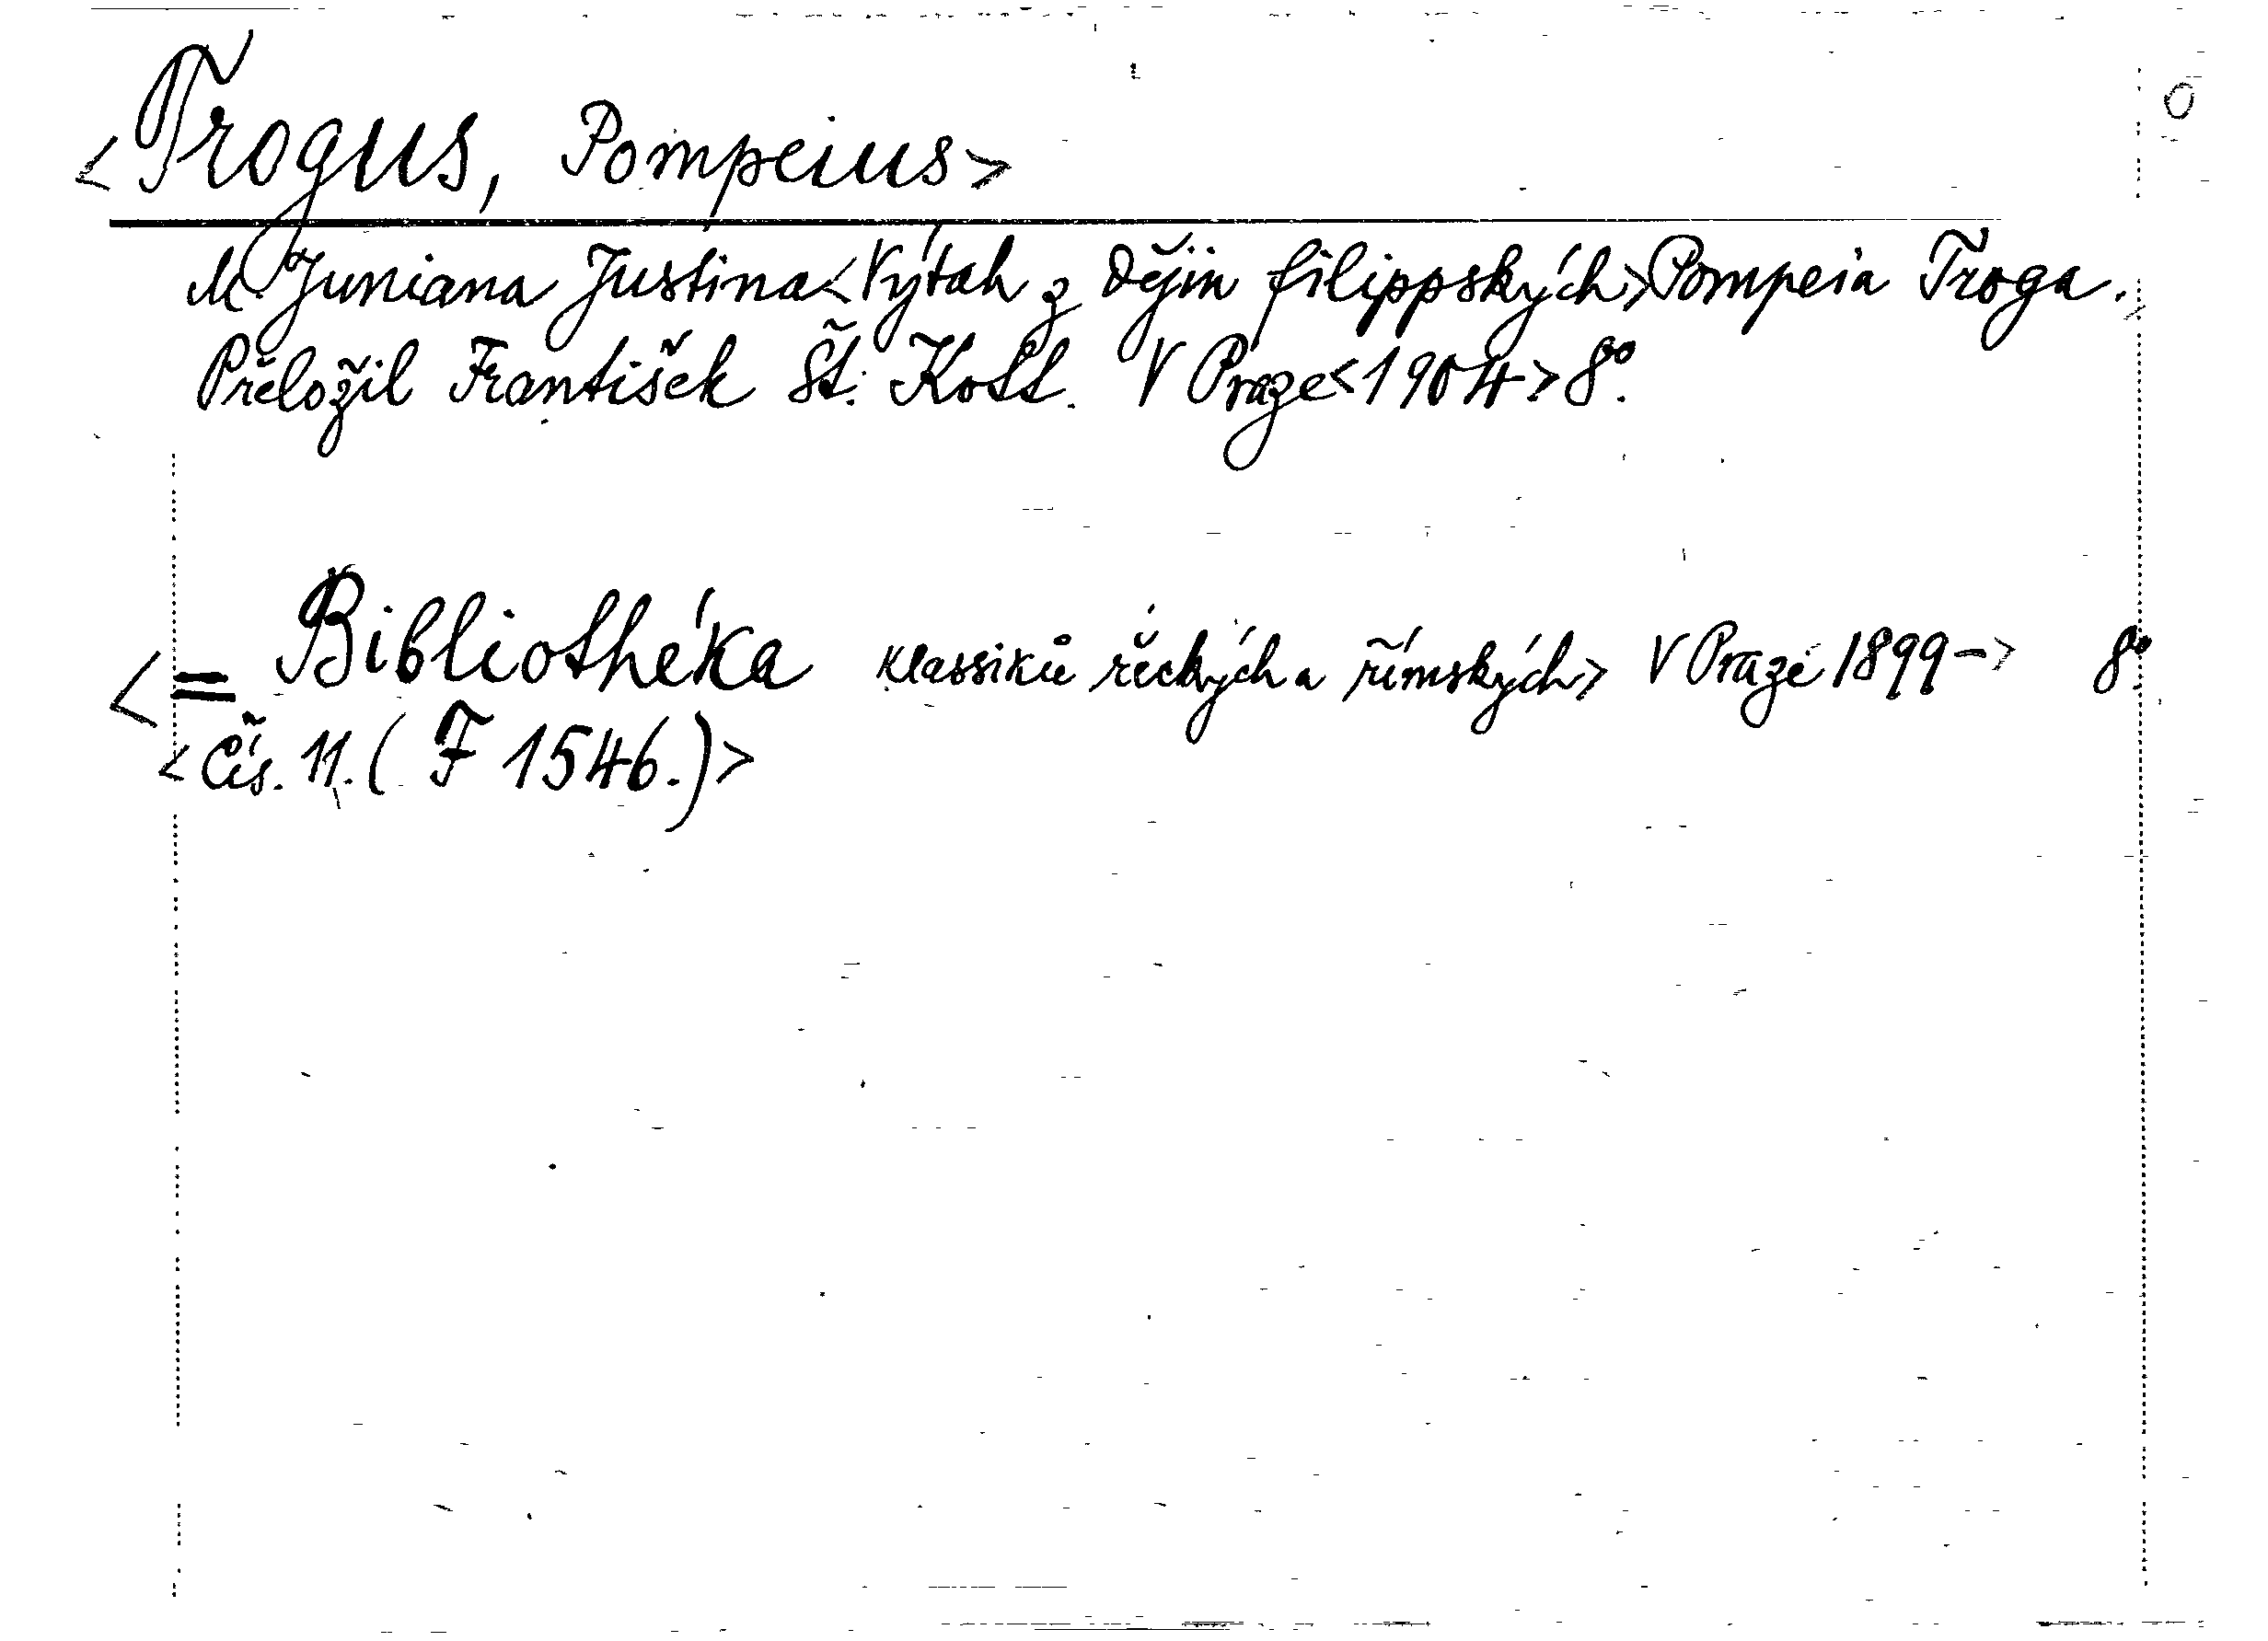 <Trogus, Pompeius>
M. Juniana Justina <Výtah z Dějin filippských> Pompeia Troga.
Přeložil František Št. Kott. V Praze <1904> 8º.
<= Bibliothéka klassiků řeckých a římských> V Praze 1899-> 8º.
<Čís. 11. (F 1546.)>